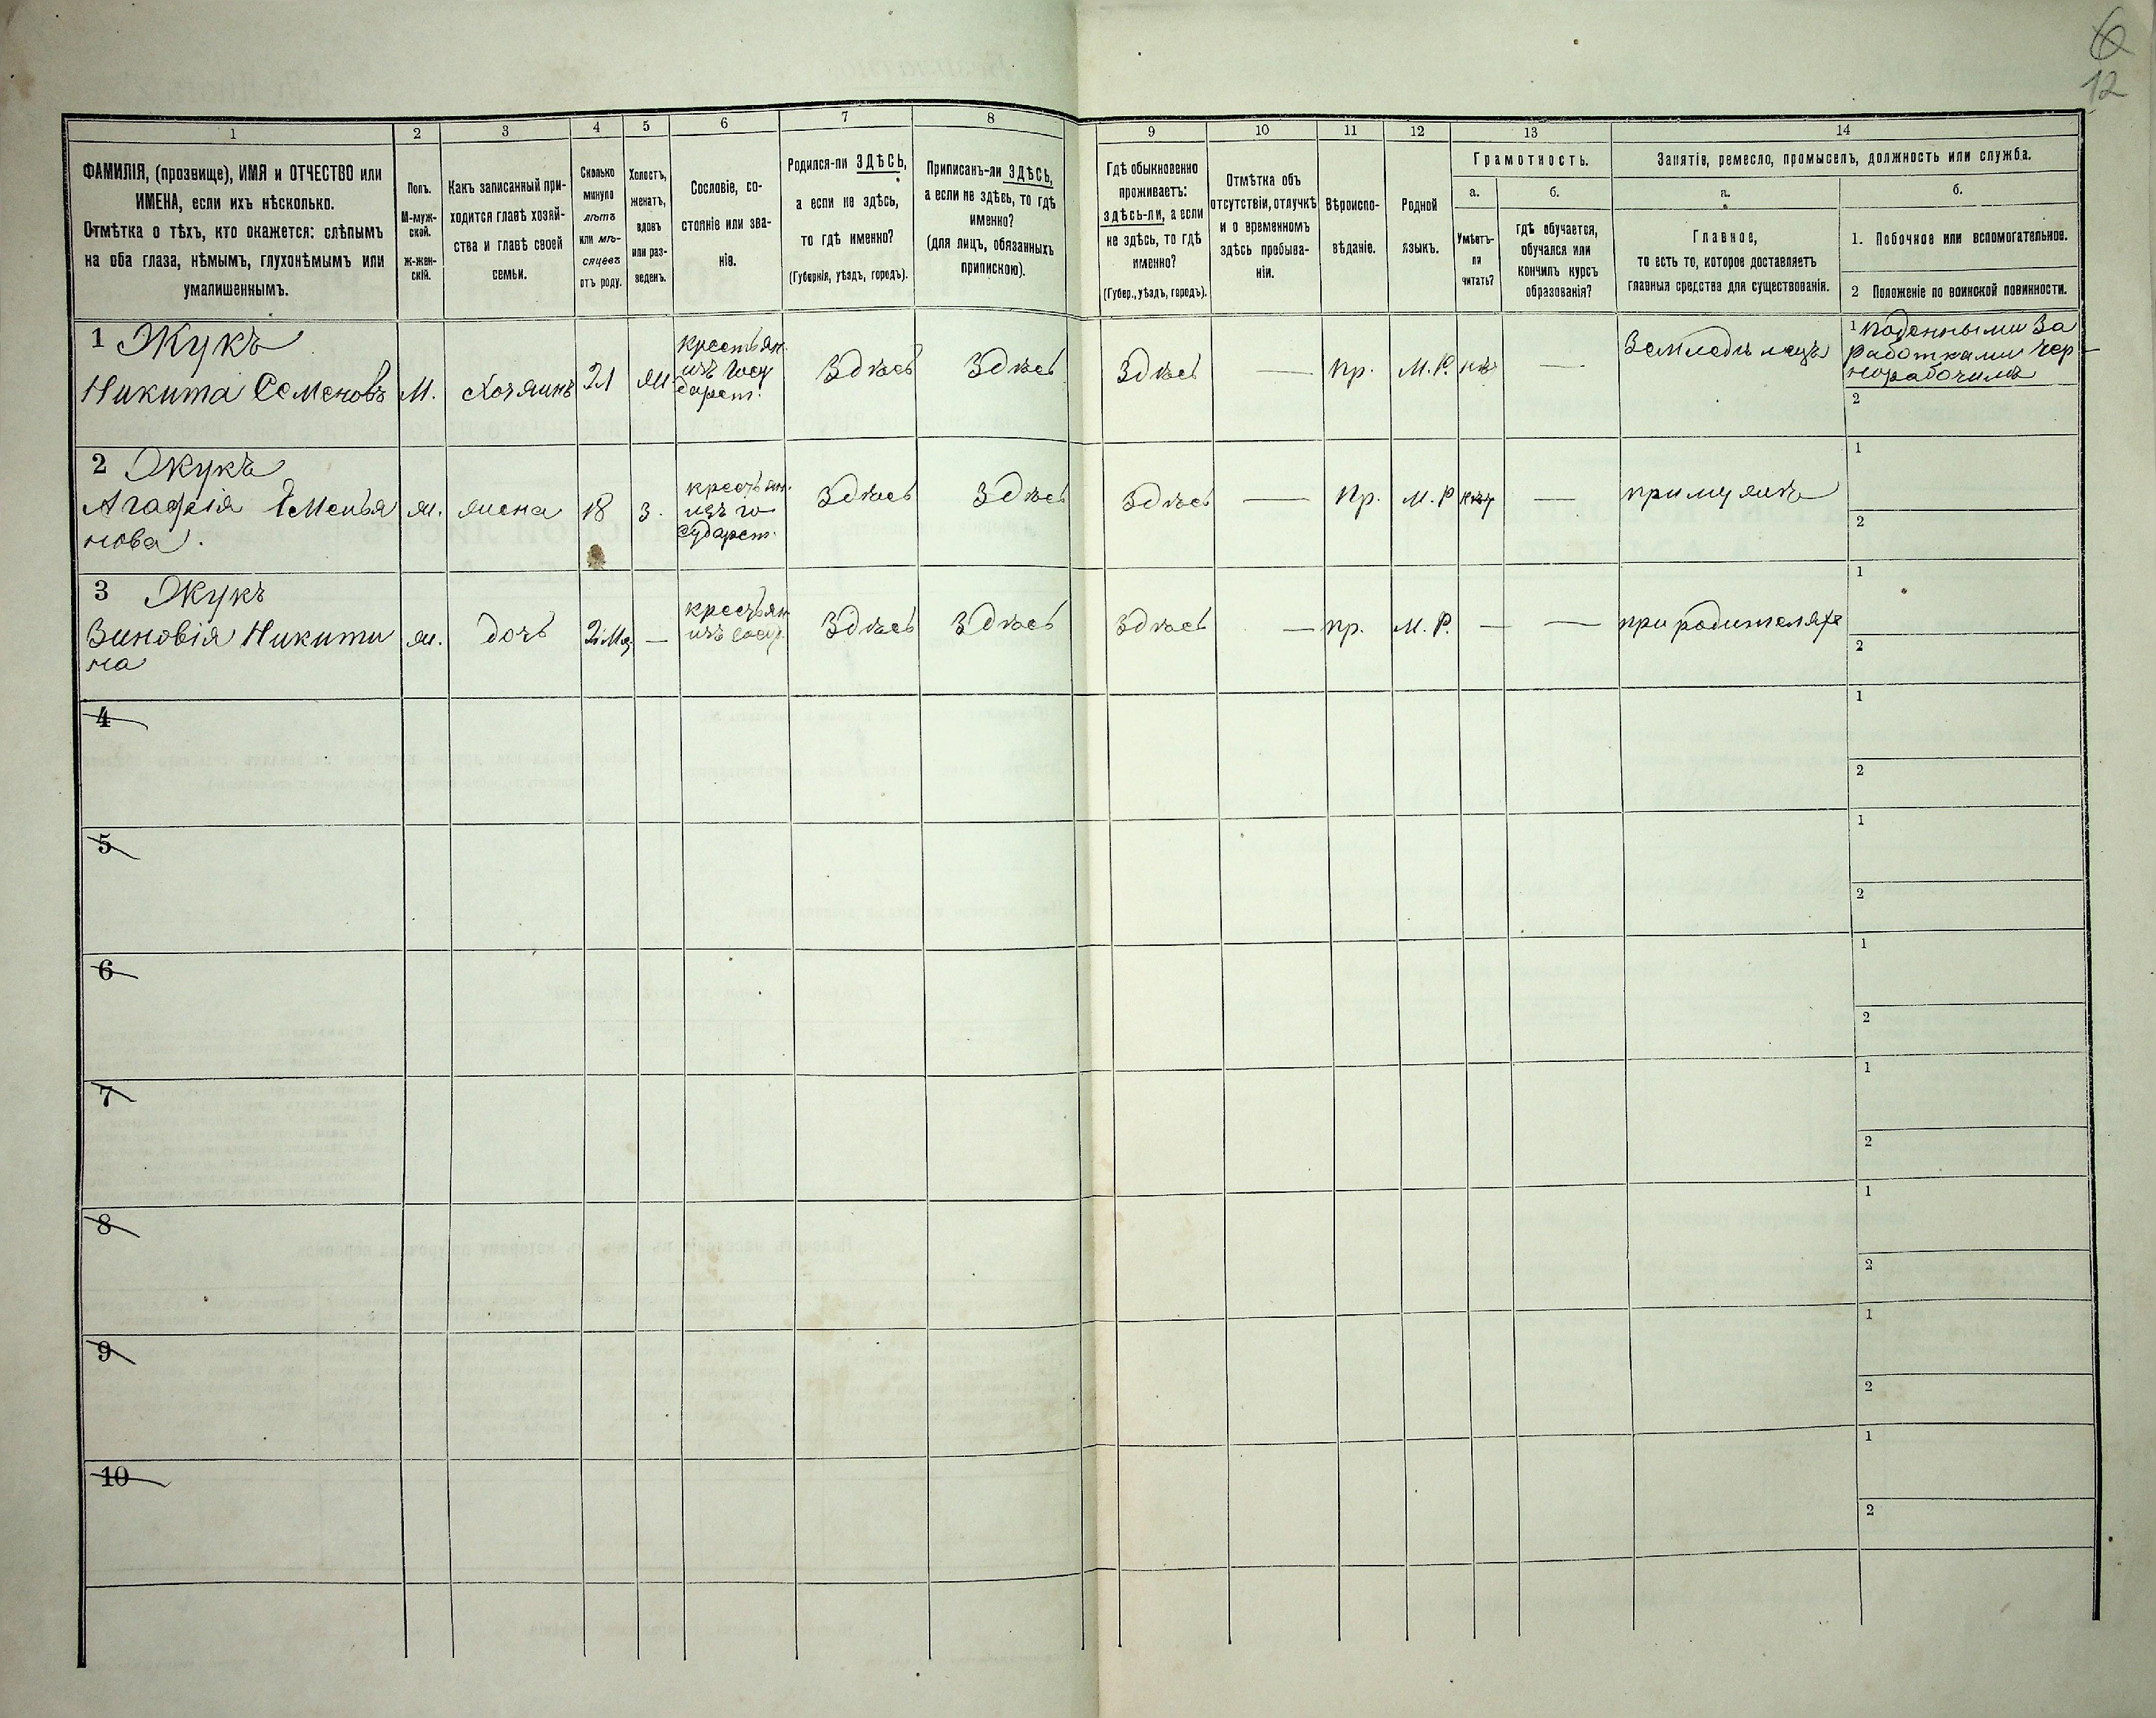 6
12
1 2 3 4 5 6 7 8 9 10 11 12 13 14
ФАМИЛІЯ, (прозвище), ИМЯ и ОТЧЕСТВО или
ИМЕНА, если ихъ нѣсколько.
Отмѣтка о тѣхъ, кто окажется: слѣпымъ
на оба глаза, нѣмымъ, глухонѣмымъ или
умалишеннымъ.
Полъ.
М-муж-
ской.
ж-жен-
скій.
Какъ записанный при-
ходится главѣ хозяй-
ства и главѣ своей
семьи.
Сколько
минуло
лѣтъ
или мѣ-
сяцевъ
отъ роду.
Холостъ,
женатъ,
вдовъ
или раз-
веденъ.
Сословіе, со-
стояніе или зва-
ніе.
Родился-ли ЗДѢСЬ,
а если не здѣсь,
то гдѣ именно?
(Губернія, уѣздъ, городъ).
Приписанъ-ли ЗДѢСЬ,
а если не здѣсь, то гдѣ
именно?
(для лицъ, обязанныхъ
припискою).
Гдѣ обыкновенно
проживаетъ:
здѣсь-ли, а если
не здѣсь, то гдѣ
именно?
(Губер., уѣздъ, городъ).
Отмѣтка объ
отсутствіи, отлучкѣ
и о временномъ
здѣсь пребыва-
ніи.
Вѣроиспо-
вѣданіе.
Родной
языкъ.
Грамотность.
а.
Умѣетъ-
ли
читать?
б.
гдѣ обучается,
обучался или
кончилъ курсъ
образованія?
Занятіе, ремесло, промыселъ, должность или служба.
а.
Главное,
то есть то, которое доставляетъ
главныя средства для существованія.
б.
1. Побочное или вспомогательное.
2 Положеніе по воинской повинности.
1 Жукъ
Никита Семеновъ
М.
Хозяинъ
21
жн
крестьян.
изъ госу
дарст.
Здѣсь
Здѣсь
Здѣсь
—
пр.
М. Р.
нѣт
—
Земледѣлецъ
1 поденными за
работками чер
норабочимъ
2
2 Жукъ
Агафія Емелья
нова.
ж.
жена
18
з.
крестьян.
изъ го
сударст.
Здѣсь
Здѣсь
Здѣсь
—
пр.
М. Р
нѣт
—
при мужѣ
1
2
3 Жукъ
Зиновія Никити
на
ж.
дочь
2 мѣ
—
крестьян
изъ госу.
Здѣсь
Здѣсь
Здѣсь
—
пр.
М. Р.
—
—
при родителяхъ
1
2
4
1
2
5
1
2
6
1
2
7
1
2
8
1
2
9
1
2
10
1
2